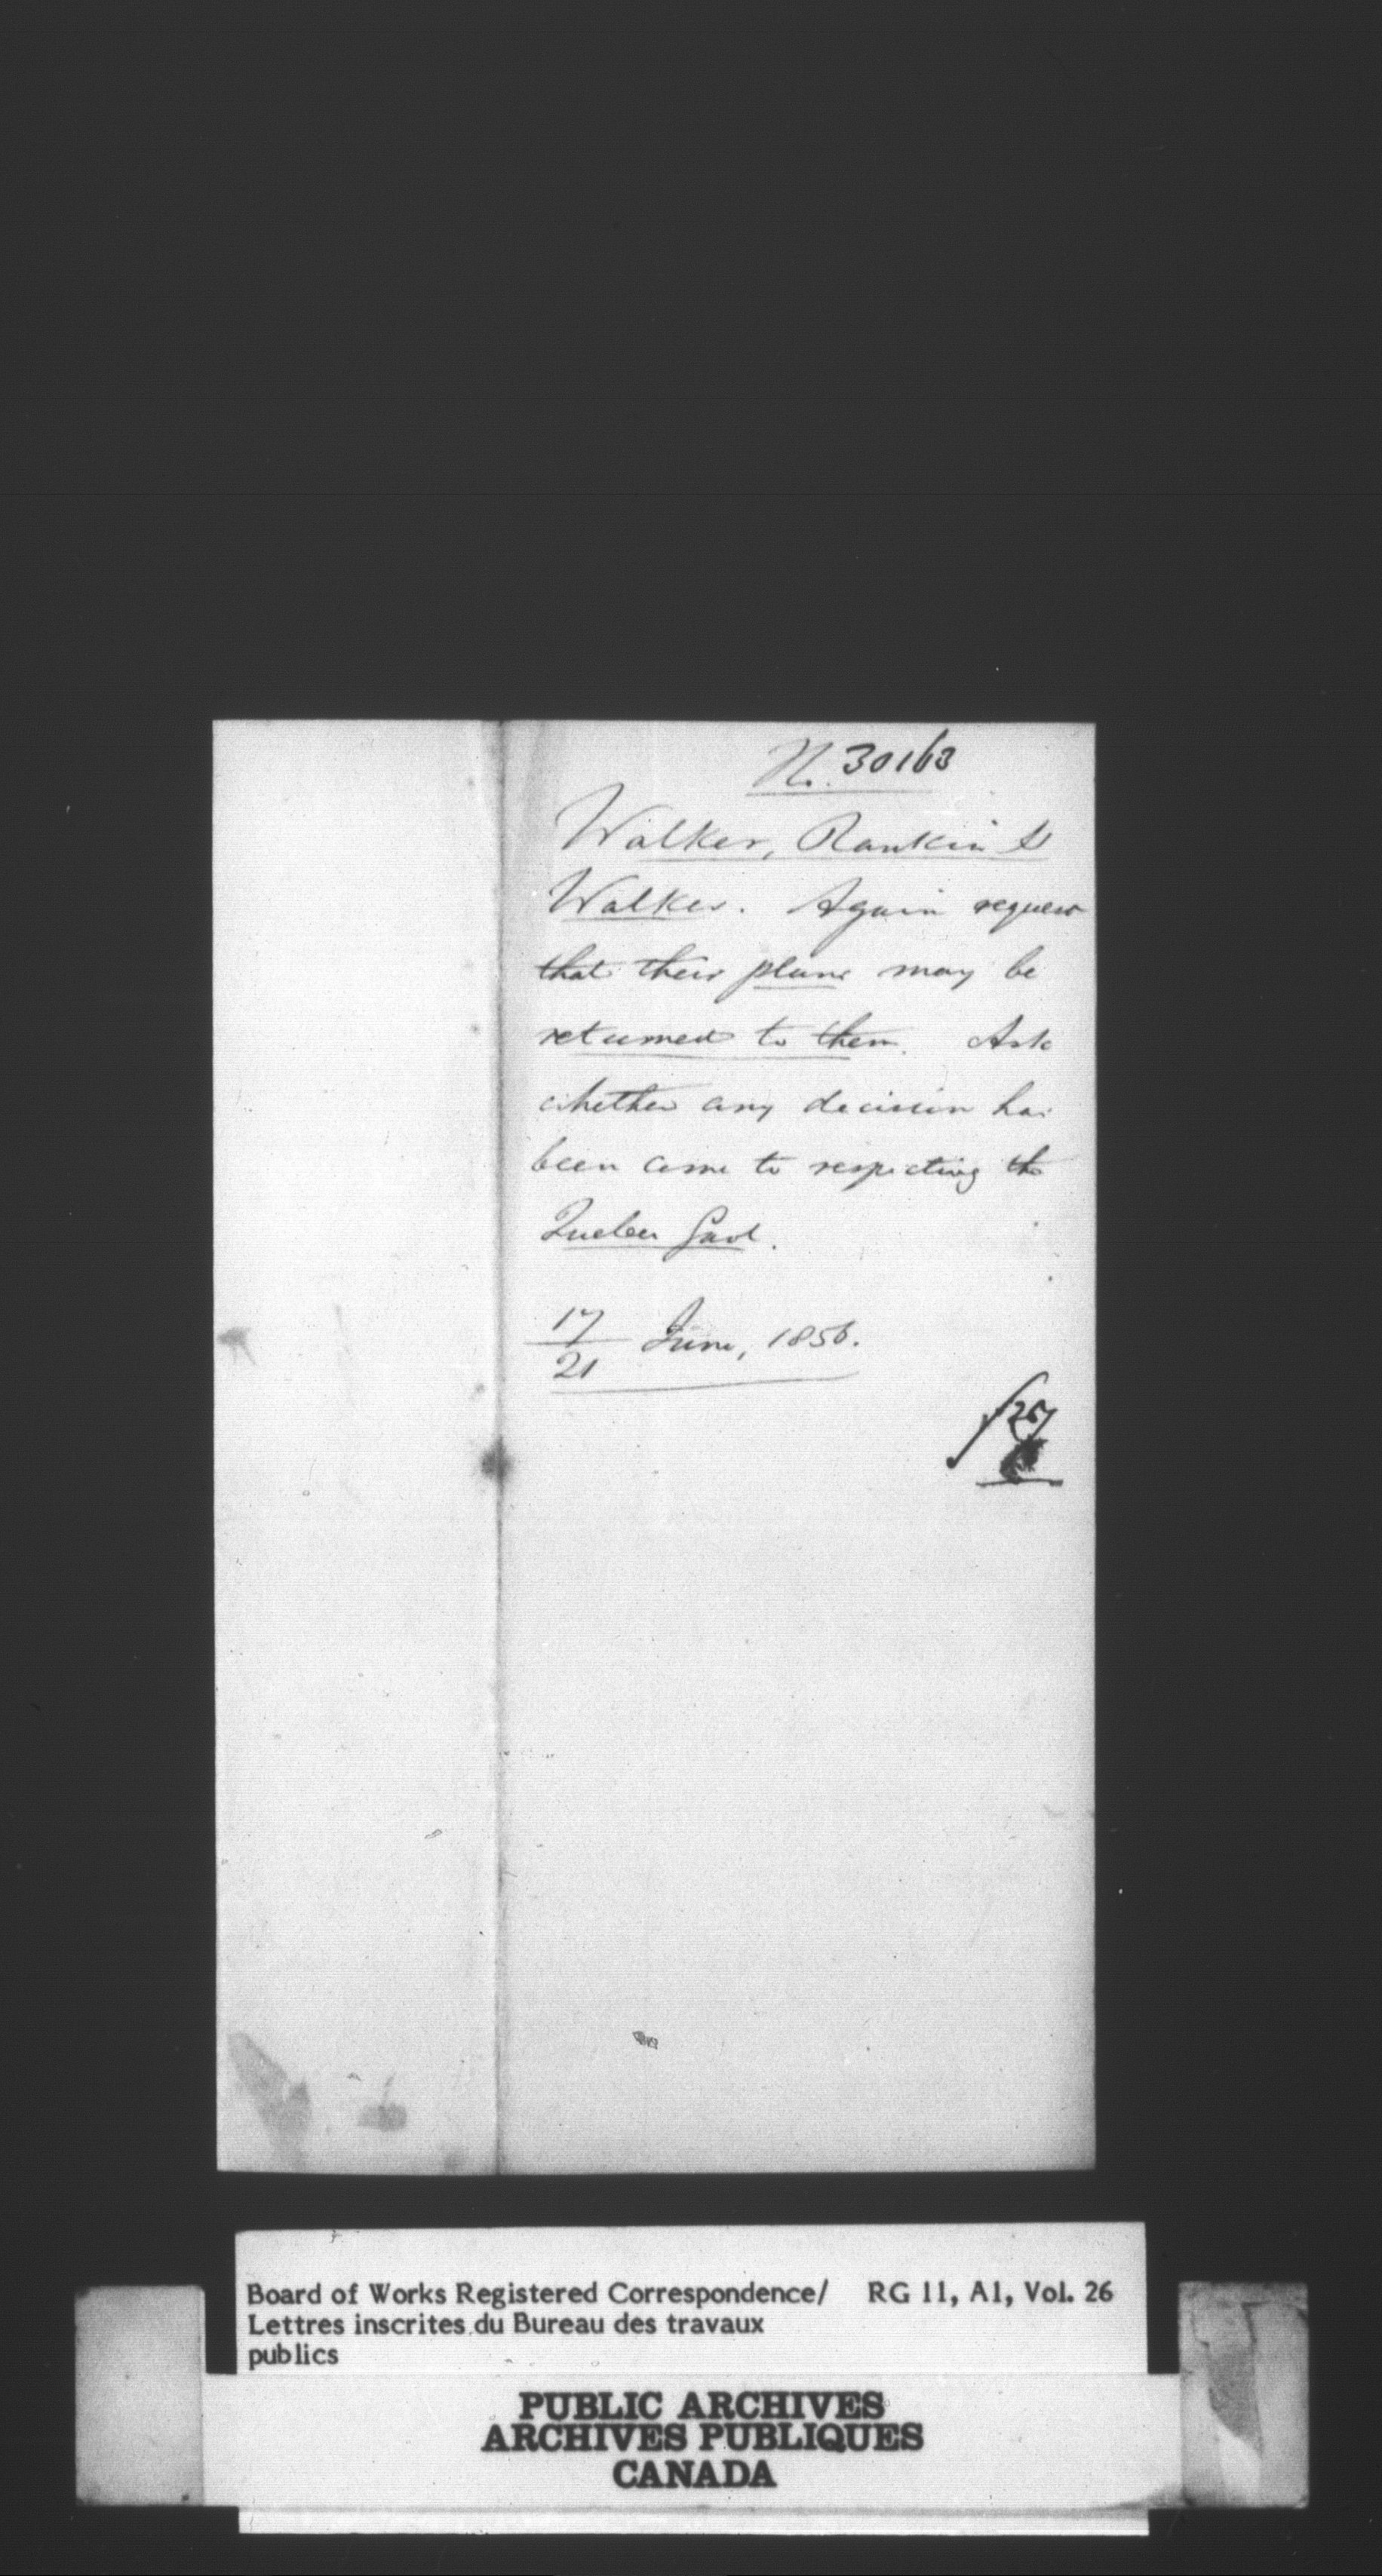 No. 30163
Walker, Rankin &
Walker. Again request
that their plans may be
returned to them. Ask
whether any decision has
been come to respecting the
Quebec Gaol.
17
21 June, 1856.
Board of Works Registered Correspondence/ RG 11, A1, Vol. 26
Lettres inscrites du Bureau des travaux
publics
PUBLIC ARCHIVES
ARCHIVES PUBLIQUES
CANADA